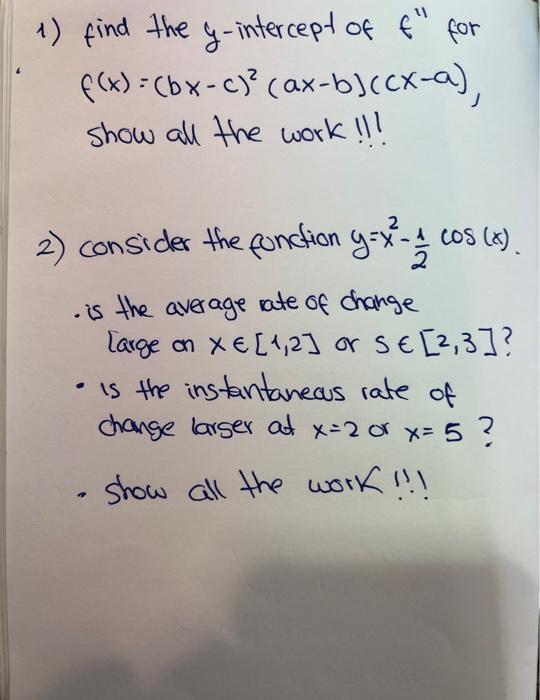 1) find the y-intercept of f" for
f(x) = (bx-c)² (ax-b)(cx-a),
show all the work !!!
2) consider the function y=x²-1/2 cos(x).
• is the average rate of change
large on x∈[1,2] or s∈[2,3]?
• is the instantaneous rate of
change larger at x=2 or x=5 ?
• show all the work !!!